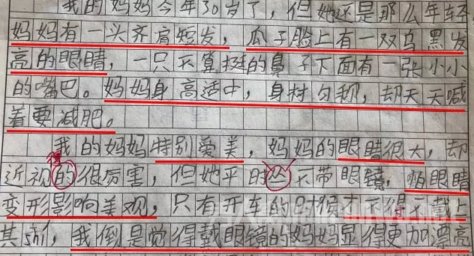 我的妈妈今年30岁了，但她还是那么年轻
妈妈有一头齐肩短发，瓜子脸上有一双乌黑发
亮的眼睛，一只不算挺的鼻子下面有一张小小
的嘴巴。妈妈身高适中，身材匀称，却天天喊
着要减肥。
我的妈妈特别爱美，妈妈的眼睛很大，却
近视的很厉害，但她平时从不带眼镜，怕眼睛
变形影响美观，只有开车的时候才不得不戴上
其实，我倒是觉得戴眼镜的妈妈显得更加漂亮